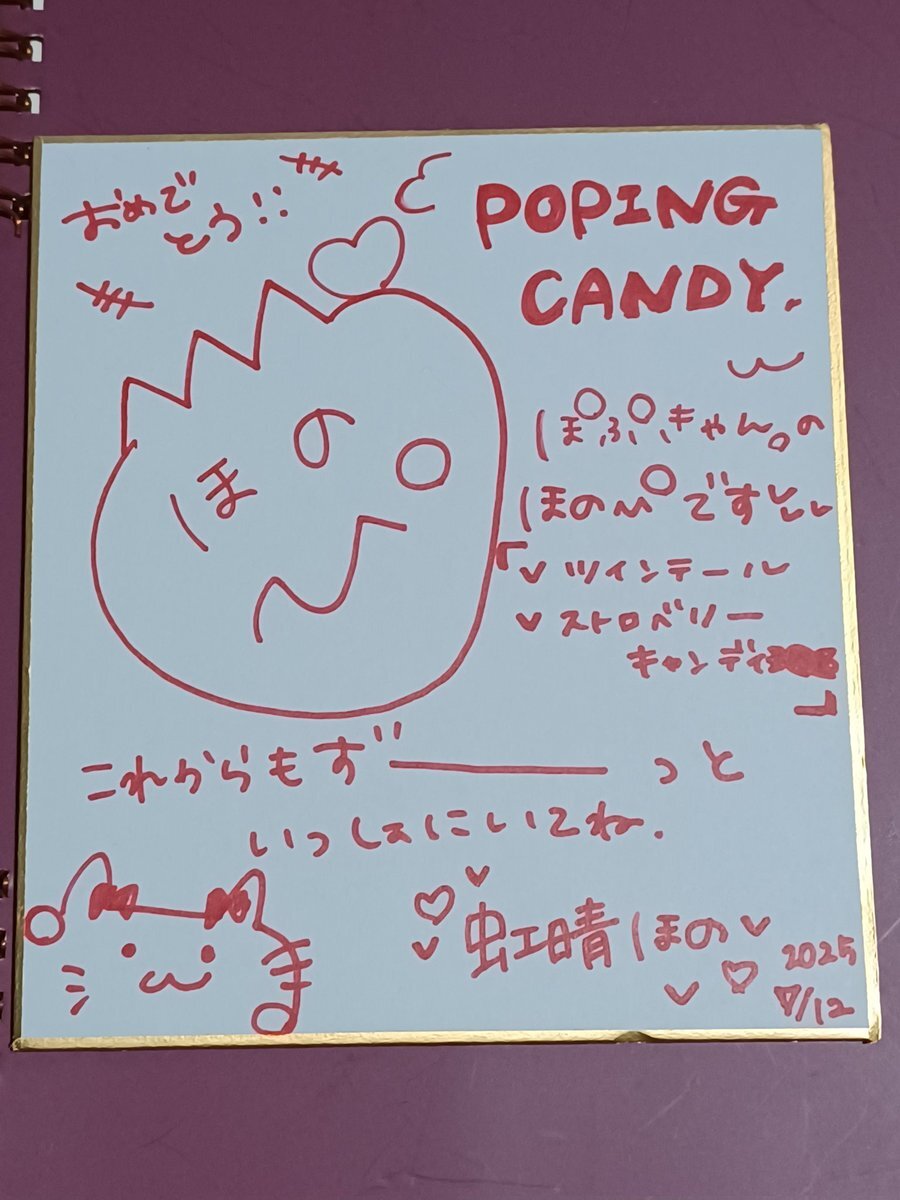 おめで
とう!!
POPING
CANDY.
ほの
ぽぷきゃん。の
ほのぴです
「♥ツインテール
♥ストロベリー
キャンディ
」
これからもず゛ーーーっと
いっしょにいてね.
虹晴ほの
2025
7/12